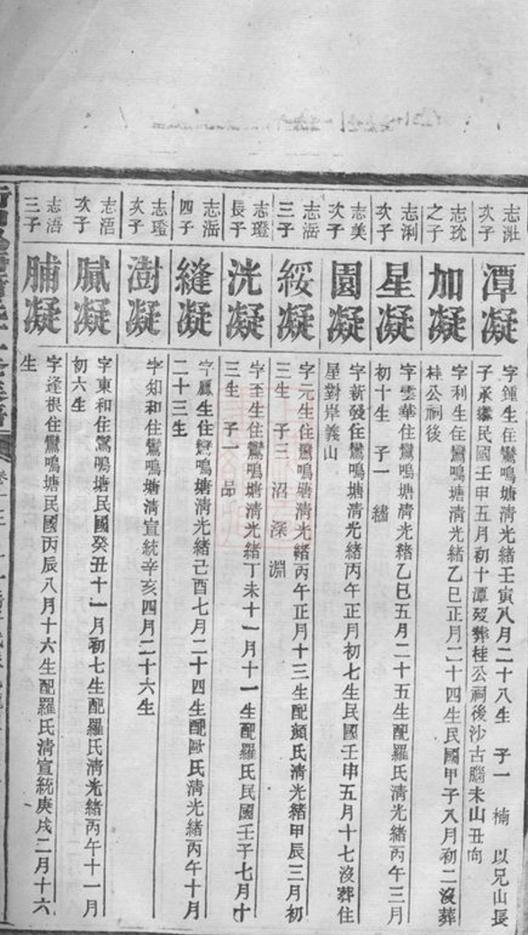 志壯
次子
潭凝
字鍾生住鸞鳴塘清光緒壬寅八月二十八生 子一 楠 以兄山長
子承繼民國壬申五月初十潭歿葬桂公祠後沙古腦未山丑向
志玧
之子
加凝
字利生住鸞鳴塘清光緒乙巳正月二十四生民國甲子八月初二沒葬
桂公祠後
志浰
次子
星凝
字雲華住鸞鳴塘清光緒乙巳五月二十五生配羅氏清光緒丙午三月
初十生 子一 繡
志美
次子
園凝
字新發住鸞鳴塘清光緒丙午正月初七生民國壬申五月十七沒葬住
星對岸義山
志滛
三子
綏凝
字元生住鸞鳴塘清光緒丙午正月十三生配顏氏清光緒甲辰三月初
三生 子三 沼 深 淵
志璒
長子
洸凝
字至生住鸞鳴塘清光緒丁未十一月十一生配羅氏民國壬子七月十
三生 子一 品
志滛
四子
縫凝
字鳳生住鸞鳴塘清光緒己酉七月二十四生配歐氏清光緒丙午十月
二十三生
志璒
次子
澍凝
字知和住鸞鳴塘清宣統辛亥四月二十六生
志浯
次子
膩凝
字東和住鸞鳴塘民國癸丑十一月初七生配羅氏清光緒丙午十一月
初六生
志浯
三子
脯凝
字逢根住鸞鳴塘民國丙辰八月十六生配羅氏清宣統庚戌二月十六
生